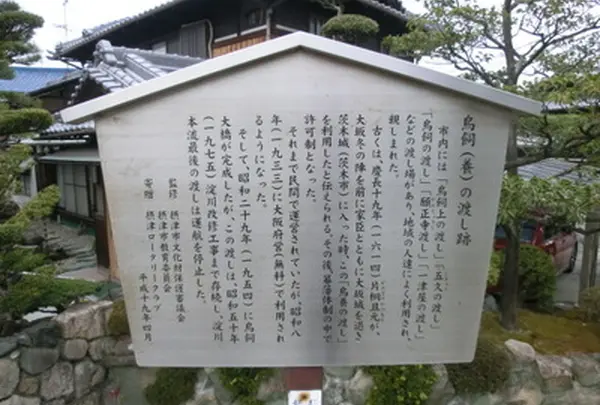 鳥飼(養)の渡し跡
市内には、「鳥飼上の渡し」「五久の渡し」
「鳥飼の渡し」「願正寺渡し」「一津屋の渡し」
などの渡し場があり、地域の人達によく利用され、
親しまれた。
古くは、慶長十九年(一六一四)片桐且元が、
大坂冬の陣を前に家臣とともに大坂城を退き
茨木城(茨木市)に入った時、この「鳥養の渡し」
を利用したと伝えられる。その後、幕藩体制の中で
許可制となった。
それまで民間で運営されていたが、昭和八
年(一九三三)に大阪府営(無料)で利用され
るようになった。
そして、昭和二十九年(一九五四)に鳥飼
大橋が完成したが、この渡しは、昭和五十年
(一九七五)淀川改修工事まで存続し、淀川
本流最後の渡しは運航を停止した。
監修 摂津市文化財保護審議会
摂津市教育委員会
寄贈 摂津ロータリークラブ
平成十九年四月